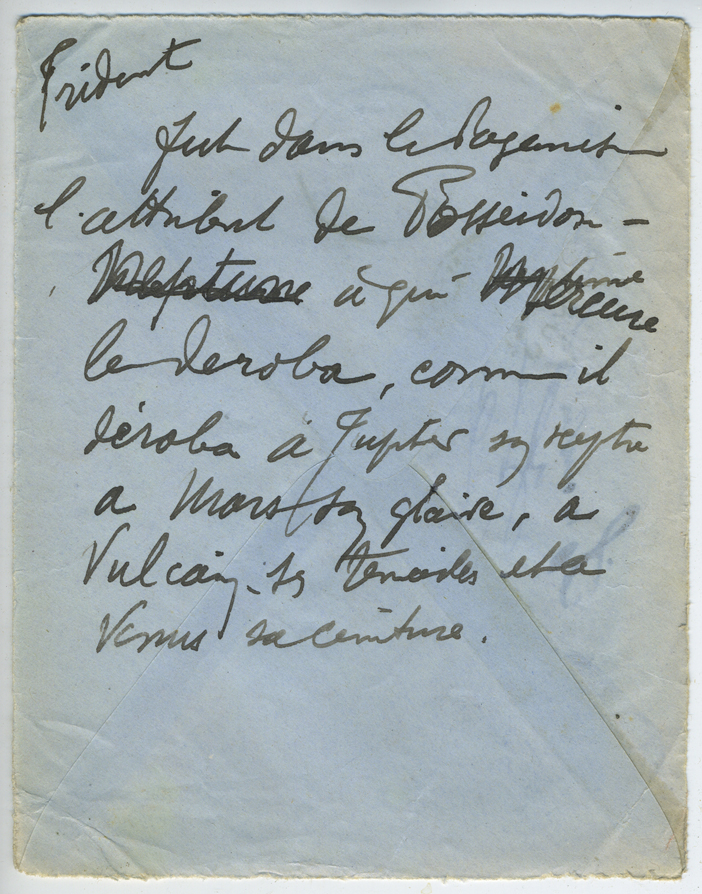 Trident
fut dans le Paganisme
l'attribut de Posseidon -
Neptune à qui Mercure
le deroba, comme il
déroba à Jupiter son sceptre
a Mars son glaive, a
Vulcain ses tenailles et a
Venus sa ceinture.